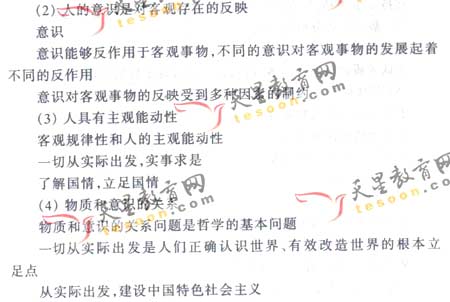 (2) 人的意识是对客观存在的反映
意识
意识能够反作用于客观事物,不同的意识对客观事物的发展起着
不同的反作用
意识对客观事物的反映受到多种因素的制约
(3) 人具有主观能动性
客观规律性和人的主观能动性
一切从实际出发,实事求是
了解国情,立足国情
(4) 物质和意识的关系
物质和意识的关系问题是哲学的基本问题
一切从实际出发是人们正确认识世界、有效改造世界的根本立
足点
从实际出发,建设中国特色社会主义
天星教育网
tesoon.com
天星教育网
tesoon.com
天星教育网
tesoon.com
天星教育网
tesoon.com